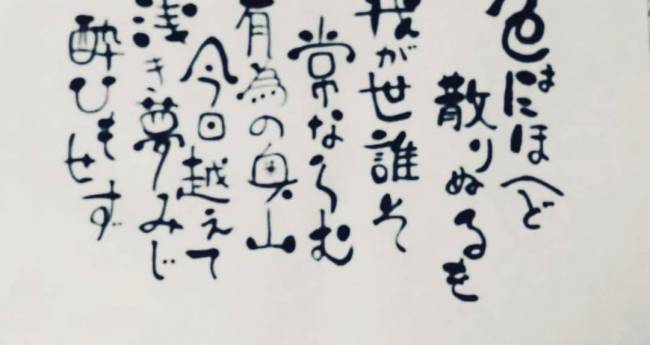 色はにほへど
散りぬるを
我が世誰そ
常ならむ
有為の奥山
今日越えて
浅き夢みじ
酔ひもせず